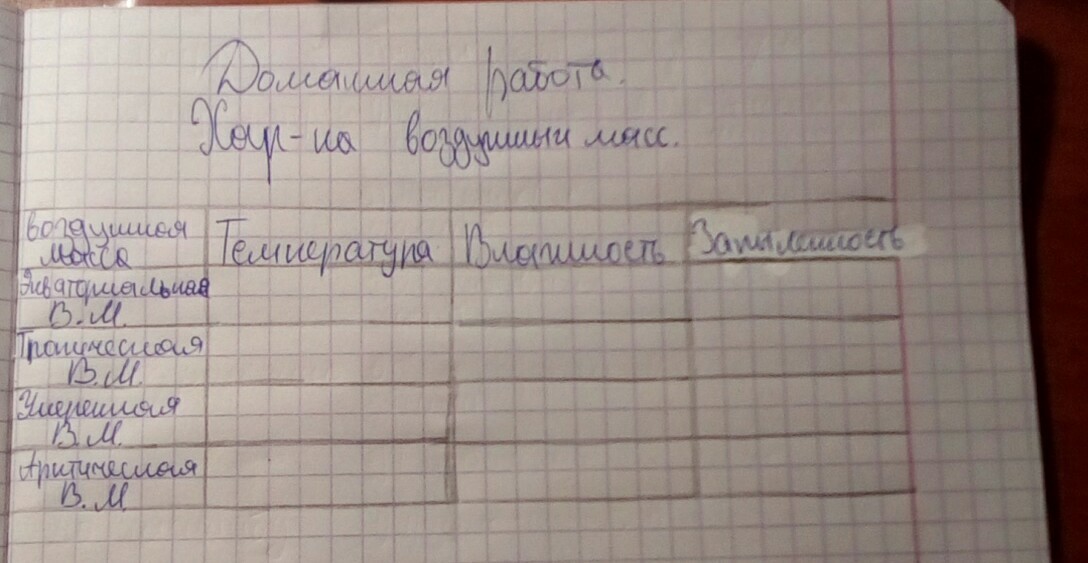 Домашная работа.
Хар-ка воздушных масс.
Воздушная масса
Температура
Влажность
Запыленность
Экваториальная
В.М.
Тропическая
В.М.
Умеренная
В.М.
Арктическая
В.М.